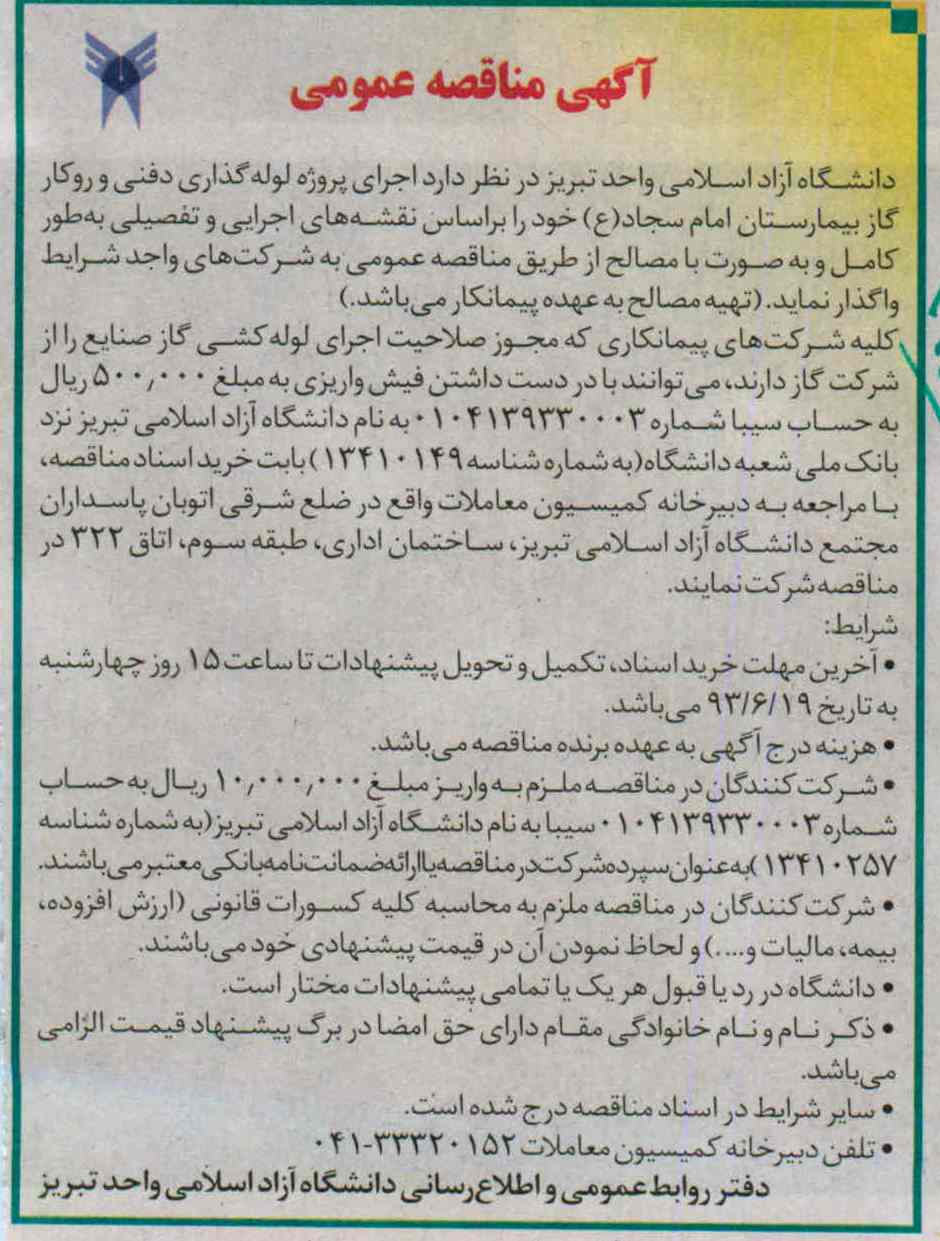 آگهی مناقصه عمومی
دانشگاه آزاد اسلامی واحد تبریز در نظر دارد اجرای پروژه لوله گذاری دفنی و روکار
گاز بیمارستان امام سجاد(ع) خود را براساس نقشه‌های اجرایی و تفصیلی به‌طور
کامل و به صورت با مصالح از طریق مناقصه عمومی به شرکت‌های واجد شرایط
واگذار نماید. (تهیه مصالح به عهده پیمانکار می‌باشد.)
کلیه شرکت‌های پیمانکاری که مجوز صلاحیت اجرای لوله‌کشی گاز صنایع را از
شرکت گاز دارند، می‌توانند با در دست داشتن فیش واریزی به مبلغ ۵۰۰٫۰۰۰ ریال
به حساب سیبا شماره ۰۱۰۴۱۳۹۳۳۰۰۰۳ به نام دانشگاه آزاد اسلامی تبریز نزد
بانک ملی شعبه دانشگاه(به شماره شناسه ۱۳۴۱۰۱۴۹) بابت خرید اسناد مناقصه،
با مراجعه به دبیرخانه کمیسیون معاملات واقع در ضلع شرقی اتوبان پاسداران
مجتمع دانشگاه آزاد اسلامی تبریز، ساختمان اداری، طبقه سوم، اتاق ۳۲۲ در
مناقصه شرکت نمایند.
شرایط:
• آخرین مهلت خرید اسناد، تکمیل و تحویل پیشنهادات تا ساعت ۱۵ روز چهارشنبه
به تاریخ ۹۳/۶/۱۹ می‌باشد.
• هزینه درج آگهی به عهده برنده مناقصه می‌باشد.
• شرکت کنندگان در مناقصه ملزم به واریز مبلغ ۱۰٫۰۰۰٫۰۰۰ ریال به حساب
شماره ۰۱۰۴۱۳۹۳۳۰۰۰۳ سیبا به نام دانشگاه آزاد اسلامی تبریز(به شماره شناسه
۱۳۴۱۰۲۵۷) به‌عنوان سپرده شرکت در مناقصه یا ارائه ضمانت‌نامه بانکی معتبر می‌باشند.
• شرکت کنندگان در مناقصه ملزم به محاسبه کلیه کسورات قانونی (ارزش افزوده،
بیمه، مالیات و....) و لحاظ نمودن آن در قیمت پیشنهادی خود می‌باشند.
• دانشگاه در رد یا قبول هر یک یا تمامی پیشنهادات مختار است.
• ذکر نام و نام خانوادگی مقام دارای حق امضا در برگ پیشنهاد قیمت الزامی
می‌باشد.
• سایر شرایط در اسناد مناقصه درج شده است.
• تلفن دبیرخانه کمیسیون معاملات ۳۳۳۲۰۱۵۲-۰۴۱
دفتر روابط عمومی و اطلاع‌رسانی دانشگاه آزاد اسلامی واحد تبریز